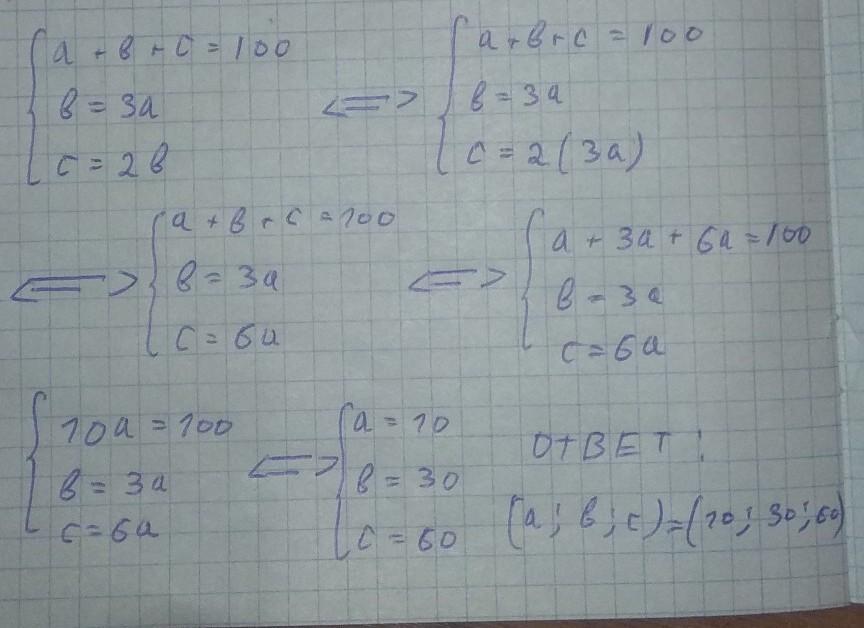 a + в + c = 100
в = 3a
c = 2в
<=> a + в + c = 100
в = 3a
c = 2(3a)
<=> a + в + c = 100
в = 3a
c = 6a
<=> a + 3a + 6a = 100
в = 3a
c = 6a
10a = 100
в = 3a
c = 6a
<=> a = 10
в = 30
c = 60
ОТВЕТ:
(a; в; c) = (10; 30; 60)